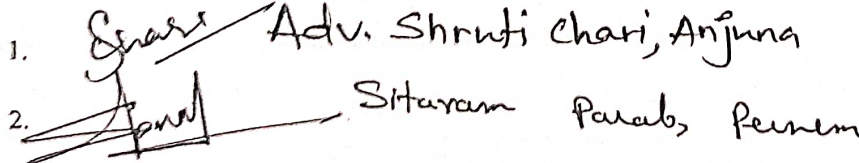 1. Adv. Shruti Chari, Anjuna
2. Sitaram Parab, Pernem